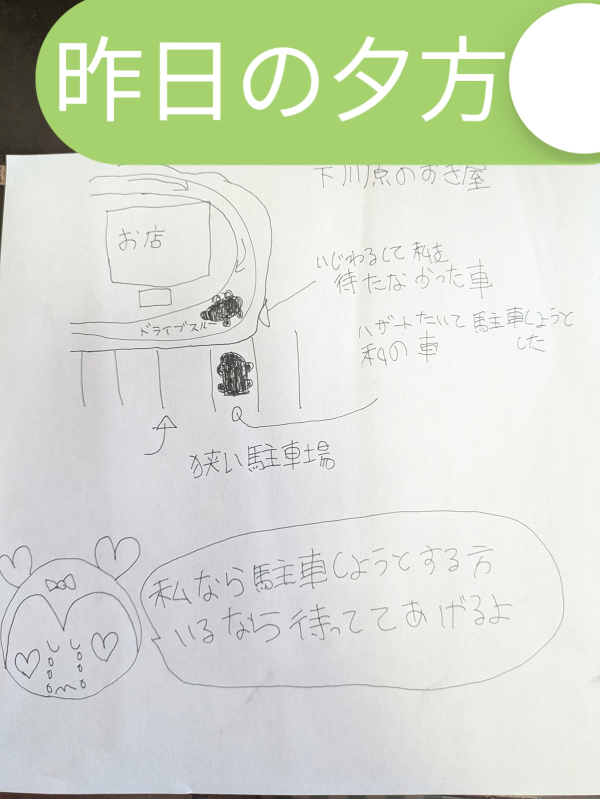 昨日の夕方
下川原のすき屋
お店
いじわるして私を
待たなかった車
ドライブスルー
ハザードたいて駐車しようと
した
私の車
狭い駐車場
私なら駐車しようとする方
いるなら待っててあげるよ